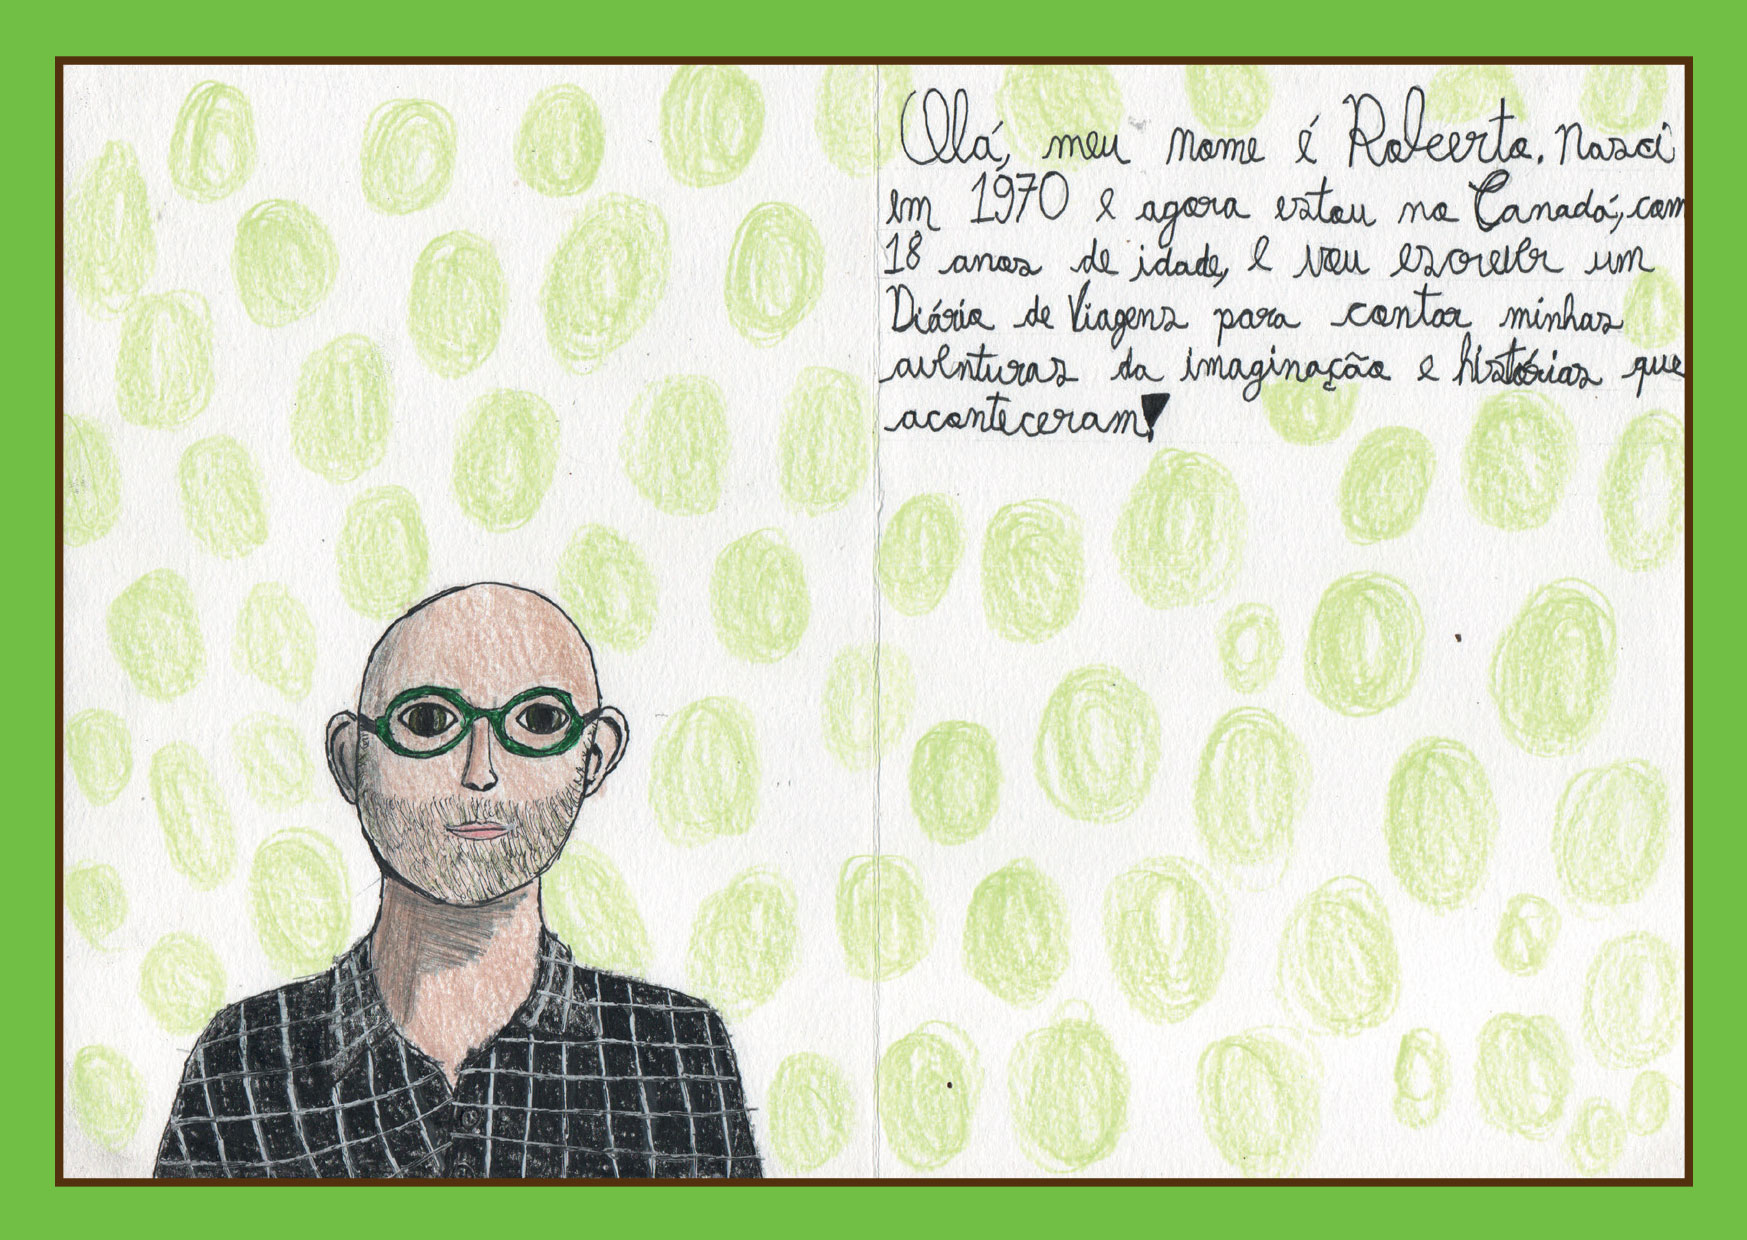 Olá, meu nome é Roberto. Nasci
em 1970 e agora estou no Canadá, com
18 anos de idade, e vou escrever um
Diário de Viagens para contar minhas
aventuras da imaginação e histórias que
aconteceram!